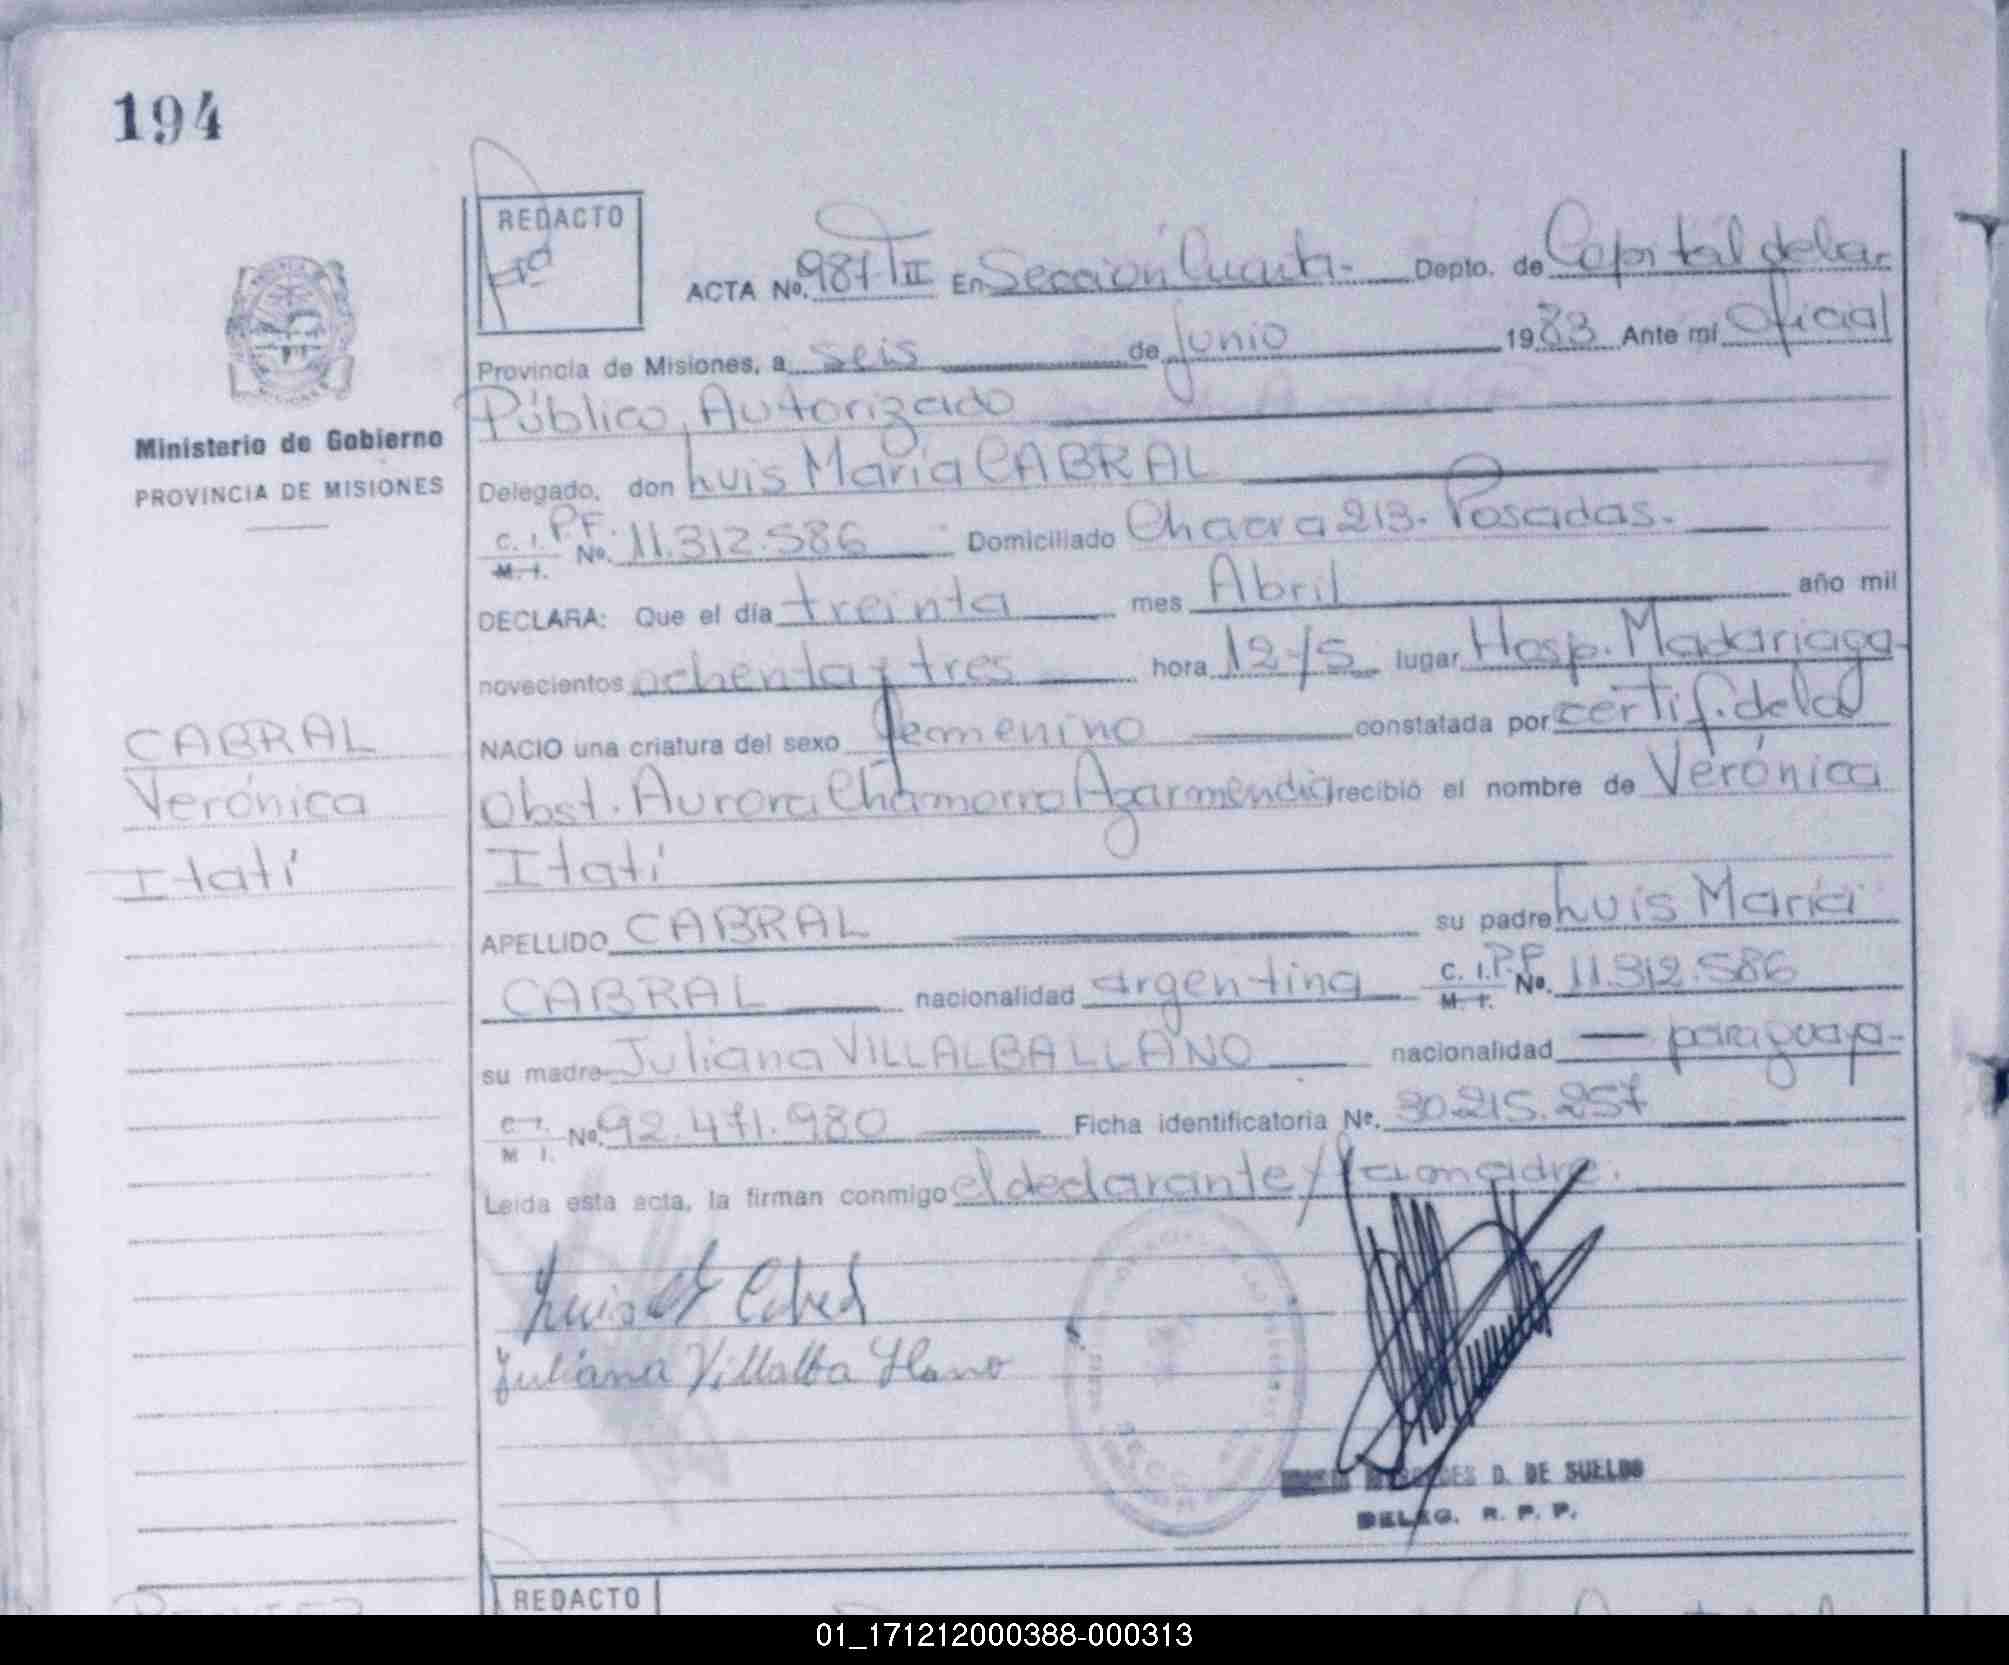 194
REDACTO
ACTA No. 981-TII En Sección Cuarta- Depto. de Capital de la
Provincia de Misiones, a seis de junio 1983 Ante mí Oficial
Público Autorizado
Ministerio de Gobierno
PROVINCIA DE MISIONES
Delegado, don Luis María CABRAL
C. I. P.F. M. I. No. 11.312.586 Domiciliado Chacra 213. Posadas.
DECLARA: Que el día treinta mes Abril año mil
novecientos ochenta y tres hora 12-15 lugar Hosp. Madariaga-
CABRAL
Verónica
Itatí
NACIO una criatura del sexo femenino constatada por certif. de la
Obst. Aurora Chamorro Agarmendia recibió el nombre de Verónica
Itatí
APELLIDO CABRAL su padre Luis María
CABRAL nacionalidad argentina C. I. P.F. M. I. No. 11.312.586
su madre Juliana VILLALBA LLANO nacionalidad — paraguaya-
C. I. M I. No. 92.471.980 Ficha identificatoria No. 30.215.257
Leida esta acta, la firman conmigo el declarante y la madre.
Luis M Cabral
Juliana Villalba Llano
D. DE SUELDO
DELEG. R. P. P.
REDACTO
01_171212000388-000313